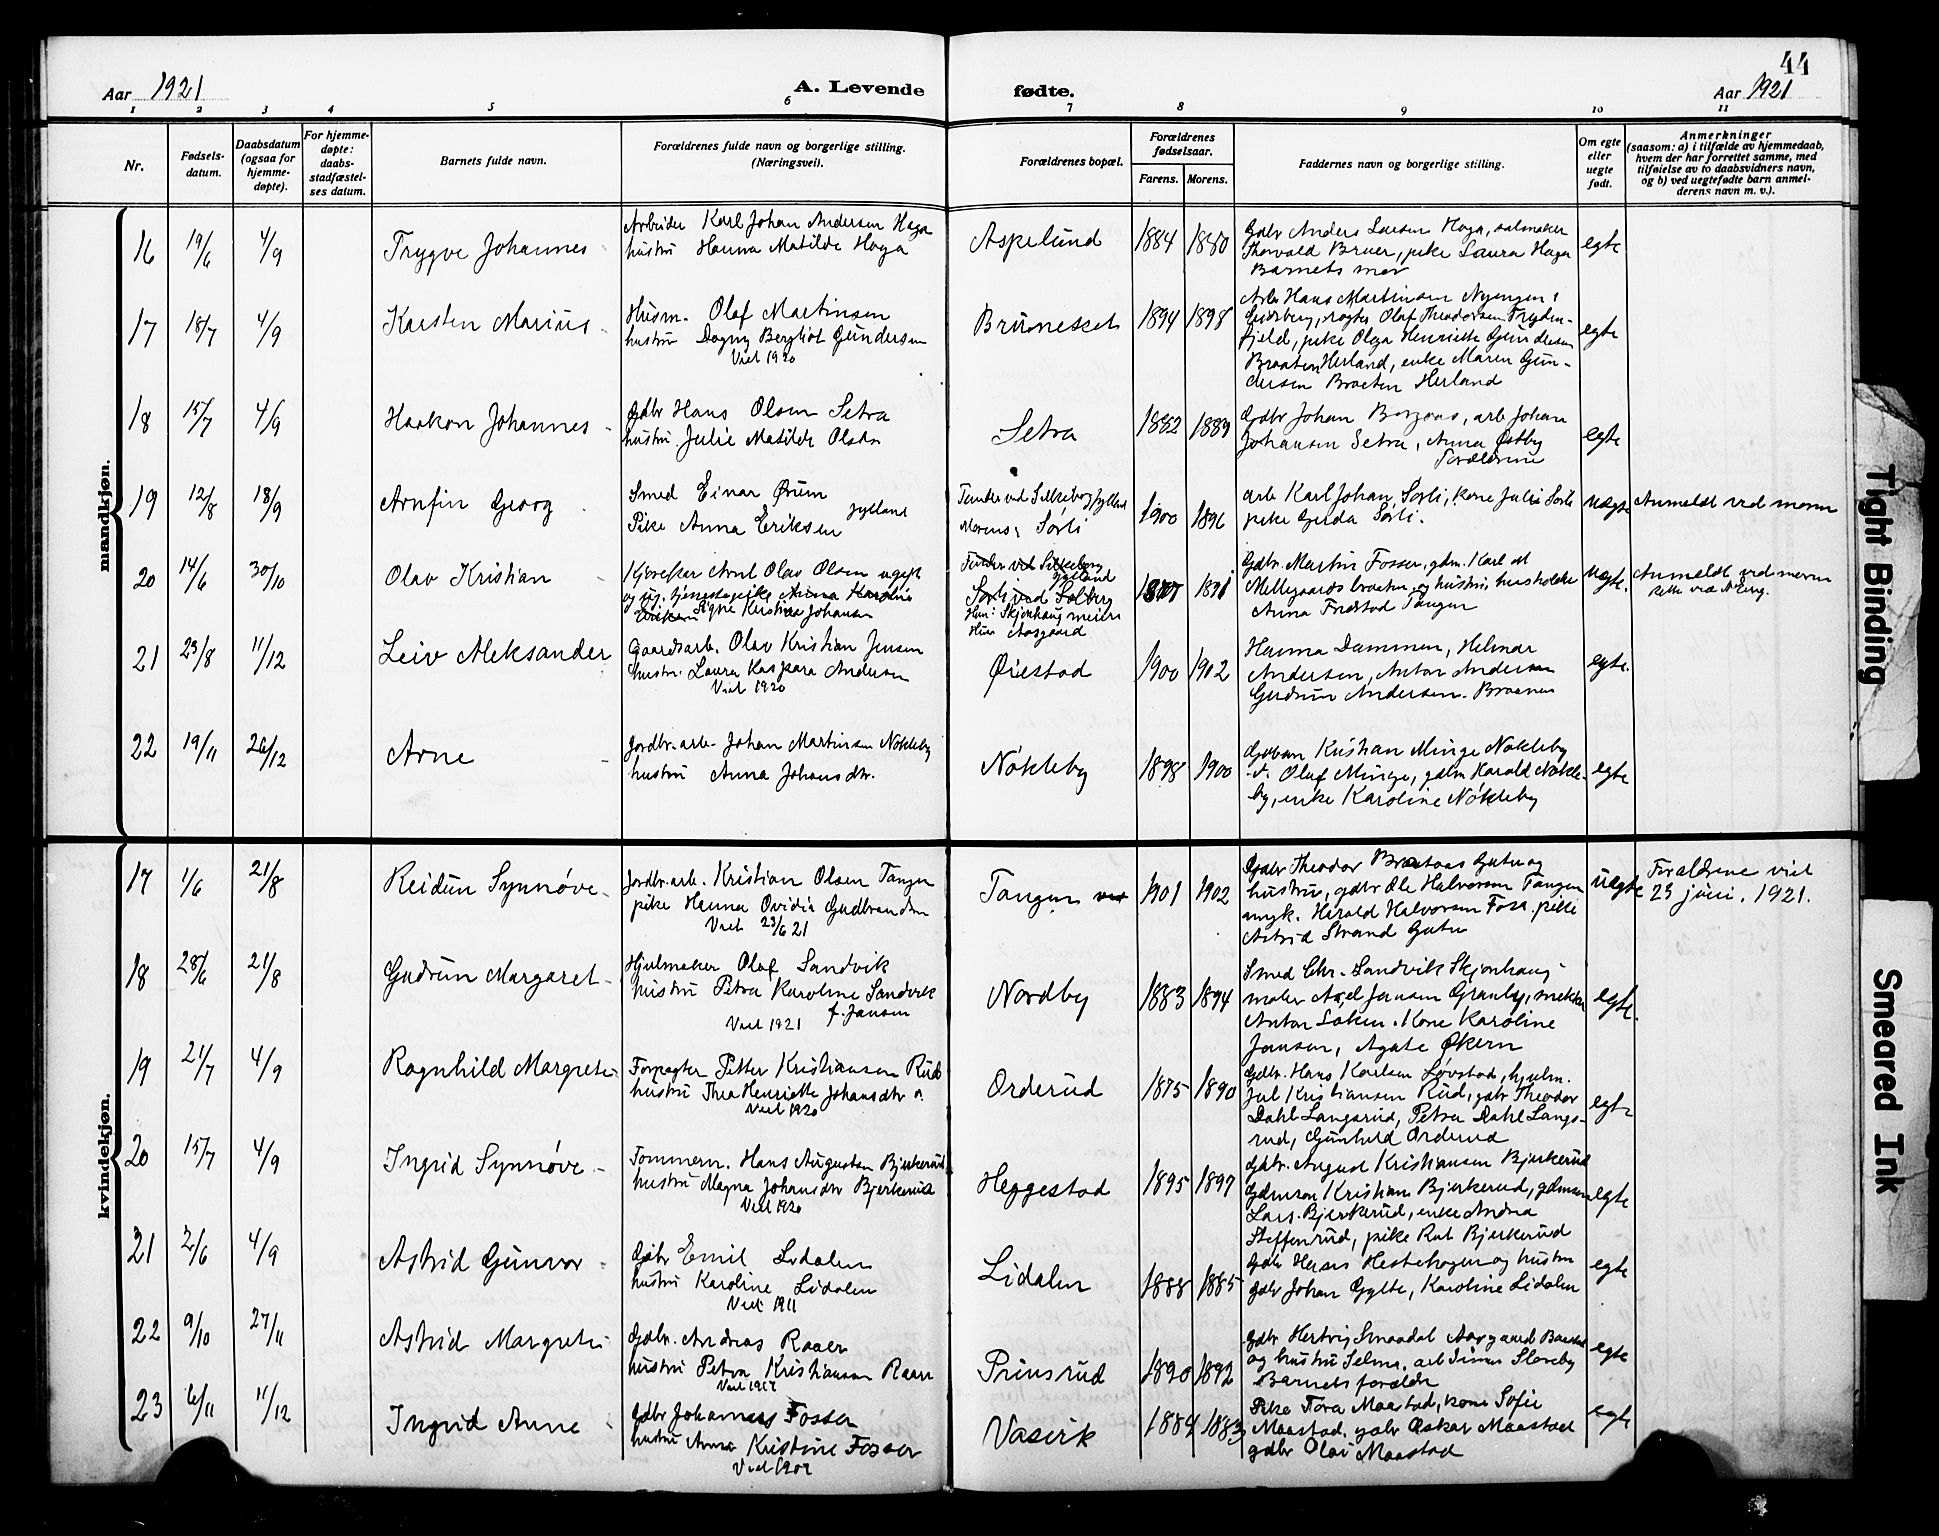 44
Aar 1921
A. Levende
fødte.
Aar 1921
1 2 3 4 5 6 7 8 9 10 11
Nr.
Fødsels-
datum.
Daabsdatum
(ogsaa for
hjemme-
døpte).
For hjemme-
døpte:
daabs-
stadfæstel-
ses datum.
Barnets fulde navn.
Forældrenes fulde navn og borgerlige stilling.
(Næringsvei).
Forældrenes bopæl.
Forældrenes
fødselsaar.
Farens. Morens.
Faddernes navn og borgerlige stilling.
Om egte
eller
uegte
født.
Anmerkninger
(saasom: a) i tilfælde av hjemmedaab,
hvem der har forrettet samme, med
tilføielse av to daabsvidners navn,
og b) ved uegtefødte barn anmel-
derens navn m. v.).
mandkjøn.
16 19/6 4/9 Trygve Johannes
Arbeider Karl Johan Andersen Haga
hustru Hanna Matilde Haga
Aspelund 1884 1880
Gdbr Anders Larsen Haga, salmaker
Thorvald Bruer, pike Laura Haga
Barnets mor
egte
17 18/7 4/9 Karsten Marius
Husm. Olaf Martinsen
hustru Dagny Bergliot Gundersen
Viet 1920
Bruneset 1894 1898
Arb Hans Martinsen Nyengen i
Eidsberg, røgter Olaf Theodorsen Fryden-
fjeld, pike Olga Henriette Gundersen
Braaten Herland, enke Maren Gun-
dersen Braaten Herland
egte
18 15/7 4/9 Haakon Johannes
Gdbr Hans Olsen Setra
hustru Julie Matilde Olsdtr
Setra 1882 1889
Gdbr Johan Borgaas, arb Johan
Johansen Setra, Anna Østby
Forældrene
egte
19 12/8 18/9 Arnfin Georg
Smed Einar Ørum
Jylland
Pike Anna Eriksen
Funder ved Silkeborg Jylland
Morens: Sørli
1900 1896
arb Karl Johan Sørli, kone Julie Sørli
pike Gerda Sørli.
uegte Anmeldt ved moren
20 14/6 30/10 Olav Kristian
Kjøreskar Arnt Olav Olsen ugift
og ug. tjenestepike Anna Karoline
Eriksen Signe Kristine Johansen
Funder ved Silkeborg
Jylland
Sørli ved Solberg
Han: Skjønhaug meieri
Hun Aasgaard
1897 1891
Gdbr. Martin Fosser, gdm. Karl
Mellegaards braaten og hustru, husholder
Anna Tangen
uegte. Anmeldt ved moren
21 23/8 11/12 Leiv Aleksander
Gaardsarb. Olav Kristian Jensen
hustru Laura Kaspara Andersen
Viet 1920
Øiestad 1900 1902
Hanna Dammen, Helmar
Andersen, Anton Andersen
Gudrun Andersen. Braanen
egte.
22 19/11 26/12 Arne
Jordbr.arb. Johan Martinsen Nøkleby
hustru Anna Johansdtr.
Nøkleby 1898 1900
Kristian Minge Nøkleby
Olaf Minge, gdm Harald Nøkle-
by, enke Karoline Nøkleby
egte
kvindekjøn.
17 1/6 21/8 Reidun Synnøve
Jordbr.arb. Kristian Olsen Tangen
pike Hanna Ovidia Gudbrandsen
Viet 23/6 21
Tangen 1901 1902
Gdbr Theodor Braataas Gutu og
hustru, gdbr Ole Halvorsen Tangen
ungk. Harald Halvorsen Foss. pike
Astrid Strand Gutu
uegte Forældrene viet
23 juni. 1921.
18 28/6 21/8 Gudrun Margaret
Hjulmaker Olaf Sandvik
hustru Petra Karoline Sandvik
f. Jansen
Viet 1921
Nordby 1883 1894
Smed Chr. Sandvik Skjønhaug
maler Axel Jansen Granby, snekker
Anton Laken. Kone Karoline
Jansen, Agate Økern
egte.
19 21/7 4/9 Ragnhild Margrete
Forpagter Petter Kristiansen Rud
hustru Thea Henriette Johansdtr
Viet 1920
Orderud 1875 1890
Gdbr. Hans Karlsen Løvstad, hjulm.
Jul Kristiansen Rud, gdbr Theodor
Dahl Langsrud, Petra Dahl Langs-
rud, Gunhild Orderud
egte
20 15/7 4/9 Ingrid Synnøve
Tømmerm. Hans Augustsen Bjerkerud
hustru Magna Johansdtr Bjerkerud
Viet 1920
Heggestad 1895 1897
Gdbr. August Kristiansen Bjerkerud
Gdmsøn Kristian Bjerkerud, gdmsøn
Lars Bjerkerud, enke Andrea
Steffenrud, pike Rut Bjerkerud
egte
21 2/6 4/9 Astrid Gunvor
Gdbr Emil Lidalen
hustru Karoline Lidalen
Viet 1911
Lidalen 1888 1885
Gdbr Hans Hestehagen og hustru
Gdbr Johan Gylte, Karoline Lidalen
egte
22 9/10 27/11 Astrid Margrete
Gdbr. Andreas Raaen
hustru Petra Kristiansen Raaen
Viet 1917
Prinsrud 1890 1892
Gdbr Hertvig Smaadal Aasgaard Baastad
og hustru Selma. arb Simen Sloreby
Barnets forældre
egte
23 6/11 11/12 Ingrid Anne
Gdbr Johannes Fosser
hustru Anna Kristine Fosser
Viet 1907
Vasvik 1884 1883
Pike Tora Maastad, kone Sofie
Maastad, gdbr Oskar Maastad
gdbr Olai Maastad
egte
Tight Binding
Smeared Ink